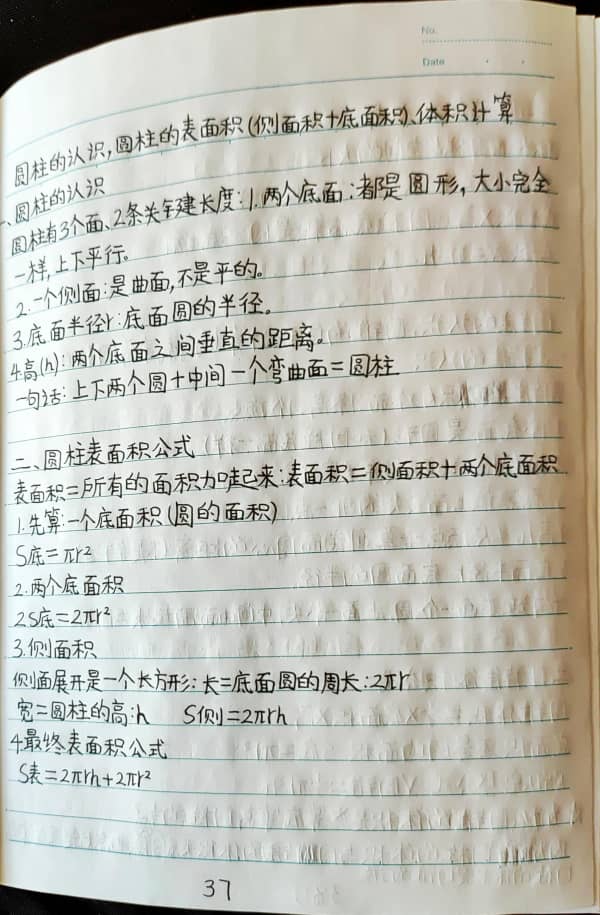 No.
Date
圆柱的认识,圆柱的表面积(侧面积+底面积)、体积计算
一、圆柱的认识
圆柱有3个面、2条关键长度:1.两个底面:都是圆形,大小完全
一样,上下平行。
2.一个侧面:是曲面,不是平的。
3.底面半径r:底面圆的半径。
4.高(h):两个底面之间垂直的距离。
一句话:上下两个圆+中间一个弯曲面=圆柱
二、圆柱表面积公式
表面积=所有的面积加起来:表面积=侧面积+两个底面积
1.先算:一个底面积(圆的面积)
S底=πr²
2.两个底面积
2S底=2πr²
3.侧面积
侧面展开是一个长方形:长=底面圆的周长:2πr
宽=圆柱的高:h S侧=2πrh
4.最终表面积公式
S表=2πrh+2πr²
37